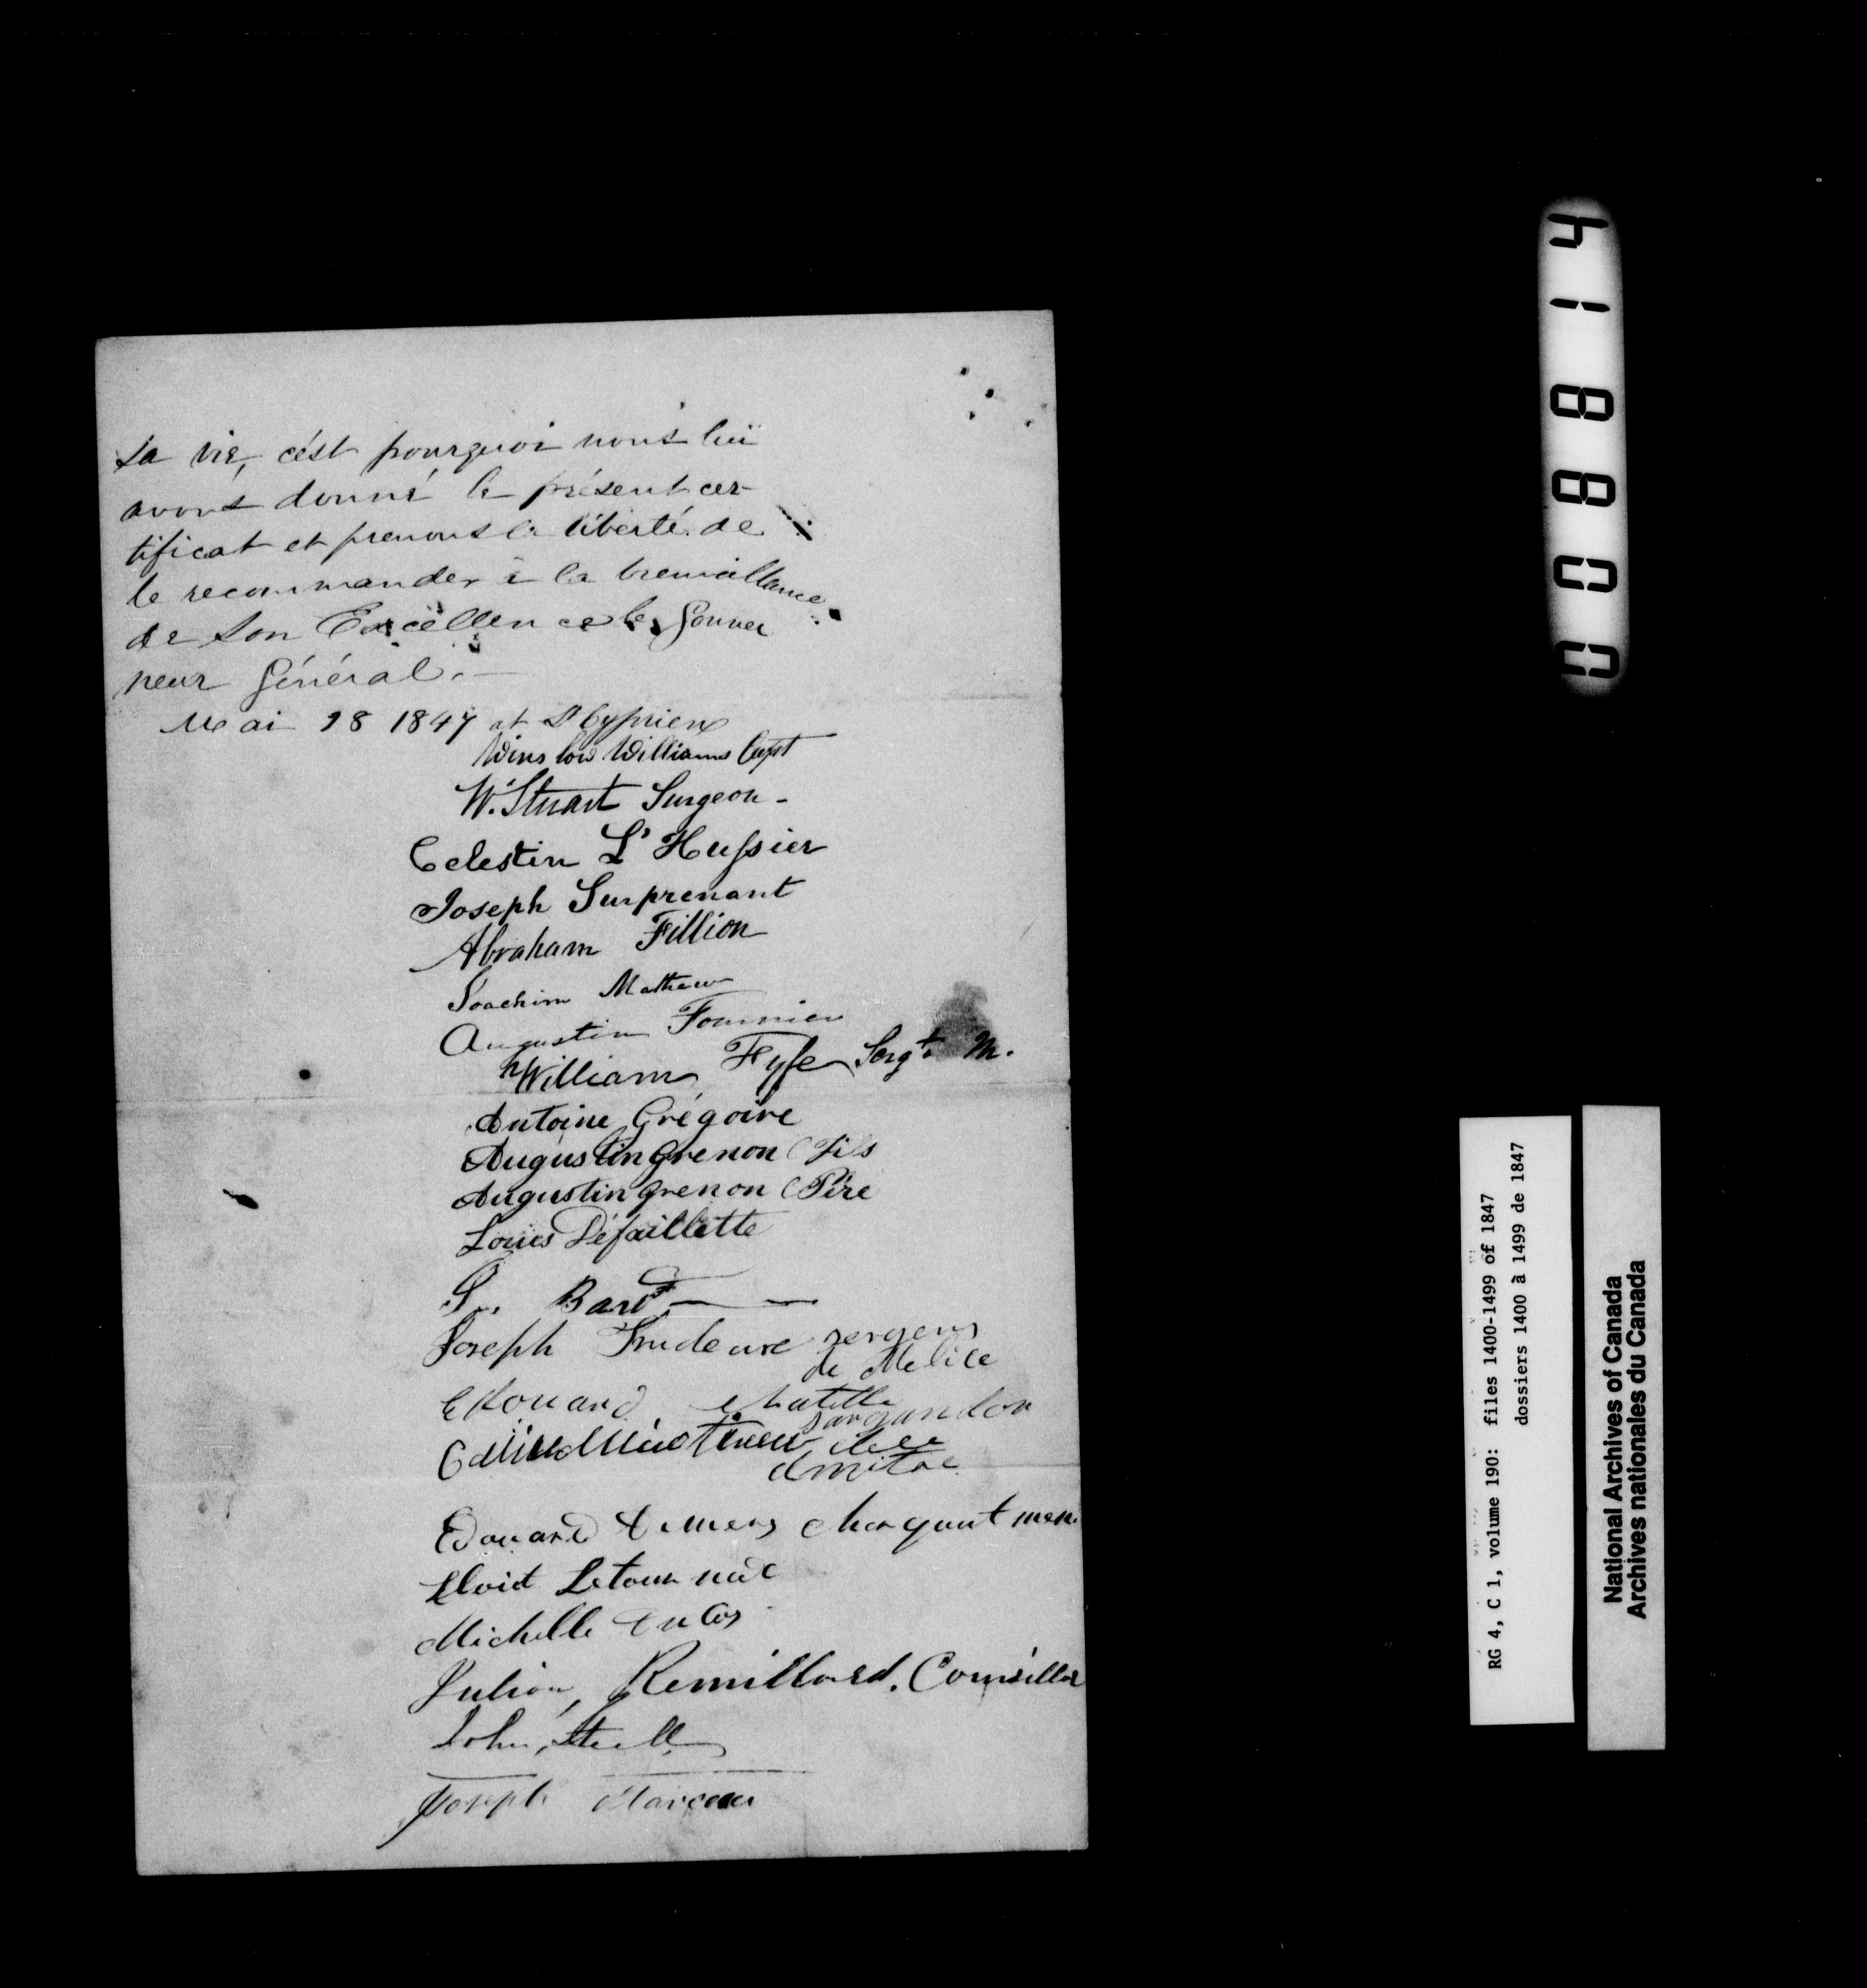 sa vie, c'est pourquoi nous lui
avons donné le présent cer-
tificat et prenons la liberté de
le recommander à la bienveillance
de son Excellence le Gouver
neur Général.—
Mai 28 1847 at St Cyprien
Winslow Williams Capt
W. Stuart Surgeon -
Celestin L'Hussier
Joseph Surprenant
Abraham Fillion
Joachim Mathew
Augustin Fournier
William Fyfe Sergt. M.
Antoine Grégoire
Augustin Grenon (Fils
Augustin Grenon (Père
Louis Défaillette
Bard
Joseph Trudeaux sergens
de Melice
Edouard
Edouard
Eloid Letourneau
Michelle
Julien Remillard. Conseiller
John
Joseph Marceau
0008814
RG 4, C 1, volume 190: files 1400-1499 of 1847
dossiers 1400 à 1499 de 1847
National Archives of Canada
Archives nationales du Canada